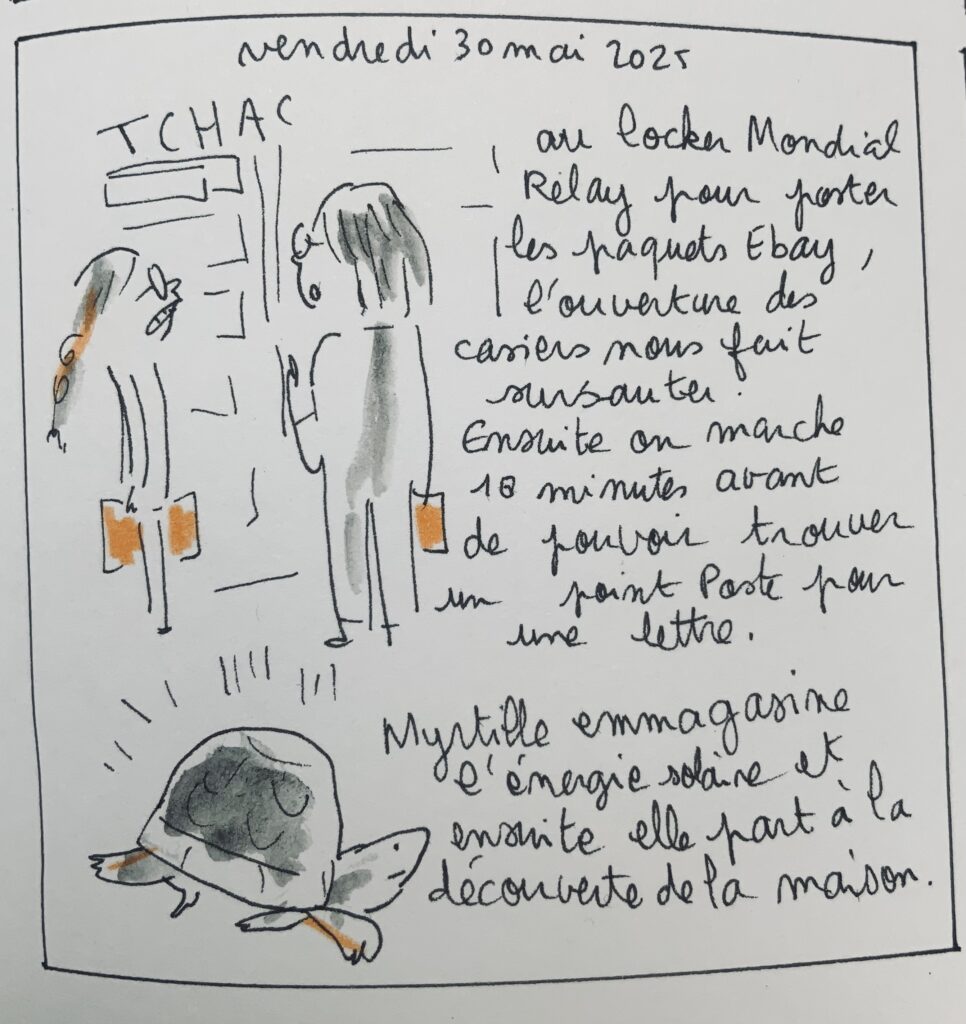 vendredi 30 mai 2025
TCHAC
au locker Mondial
Relay pour poster
les paquets Ebay,
l'ouverture des
casiers nous fait
sursauter.
Ensuite on marche
18 minutes avant
de pouvoir trouver
un point Poste pour
une lettre.
Myrtille emmagasine
l'énergie solaire et
ensuite elle part à la
découverte de la maison.